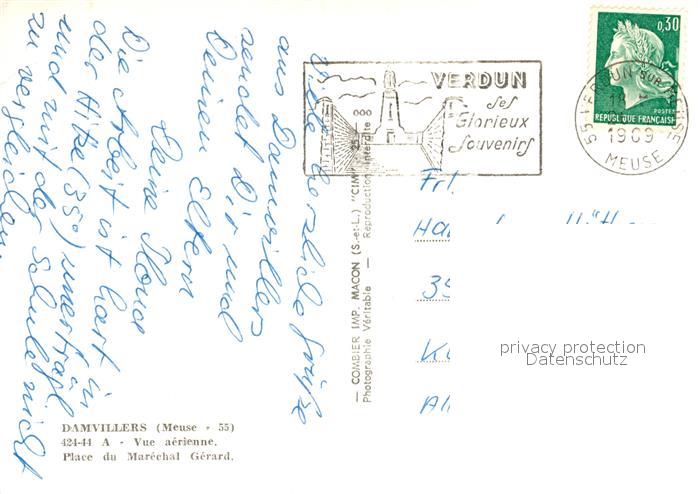 Viele herzliche Grüße
aus Damvillers
sendet Dir und
Deinen Eltern
Deine
Die Arbeit ist hart in
der Hitze (35°)
und mit der Schule nicht
zu vergleichen.
VERDUN
ses
Glorieux
Souvenirs
55 VERDUN SUR MEUSE
18
1969
MEUSE
0,30
POSTES
REPUBLIQUE FRANÇAISE
— COMBIER IMP. MACON (S.-et-L.) "CIM" —
Photographie Véritable — Reproduction interdite
Fr
Ha
35
K
Al
privacy protection
Datenschutz
DAMVILLERS (Meuse - 55)
424-44 A - Vue aérienne.
Place du Maréchal Gérard.